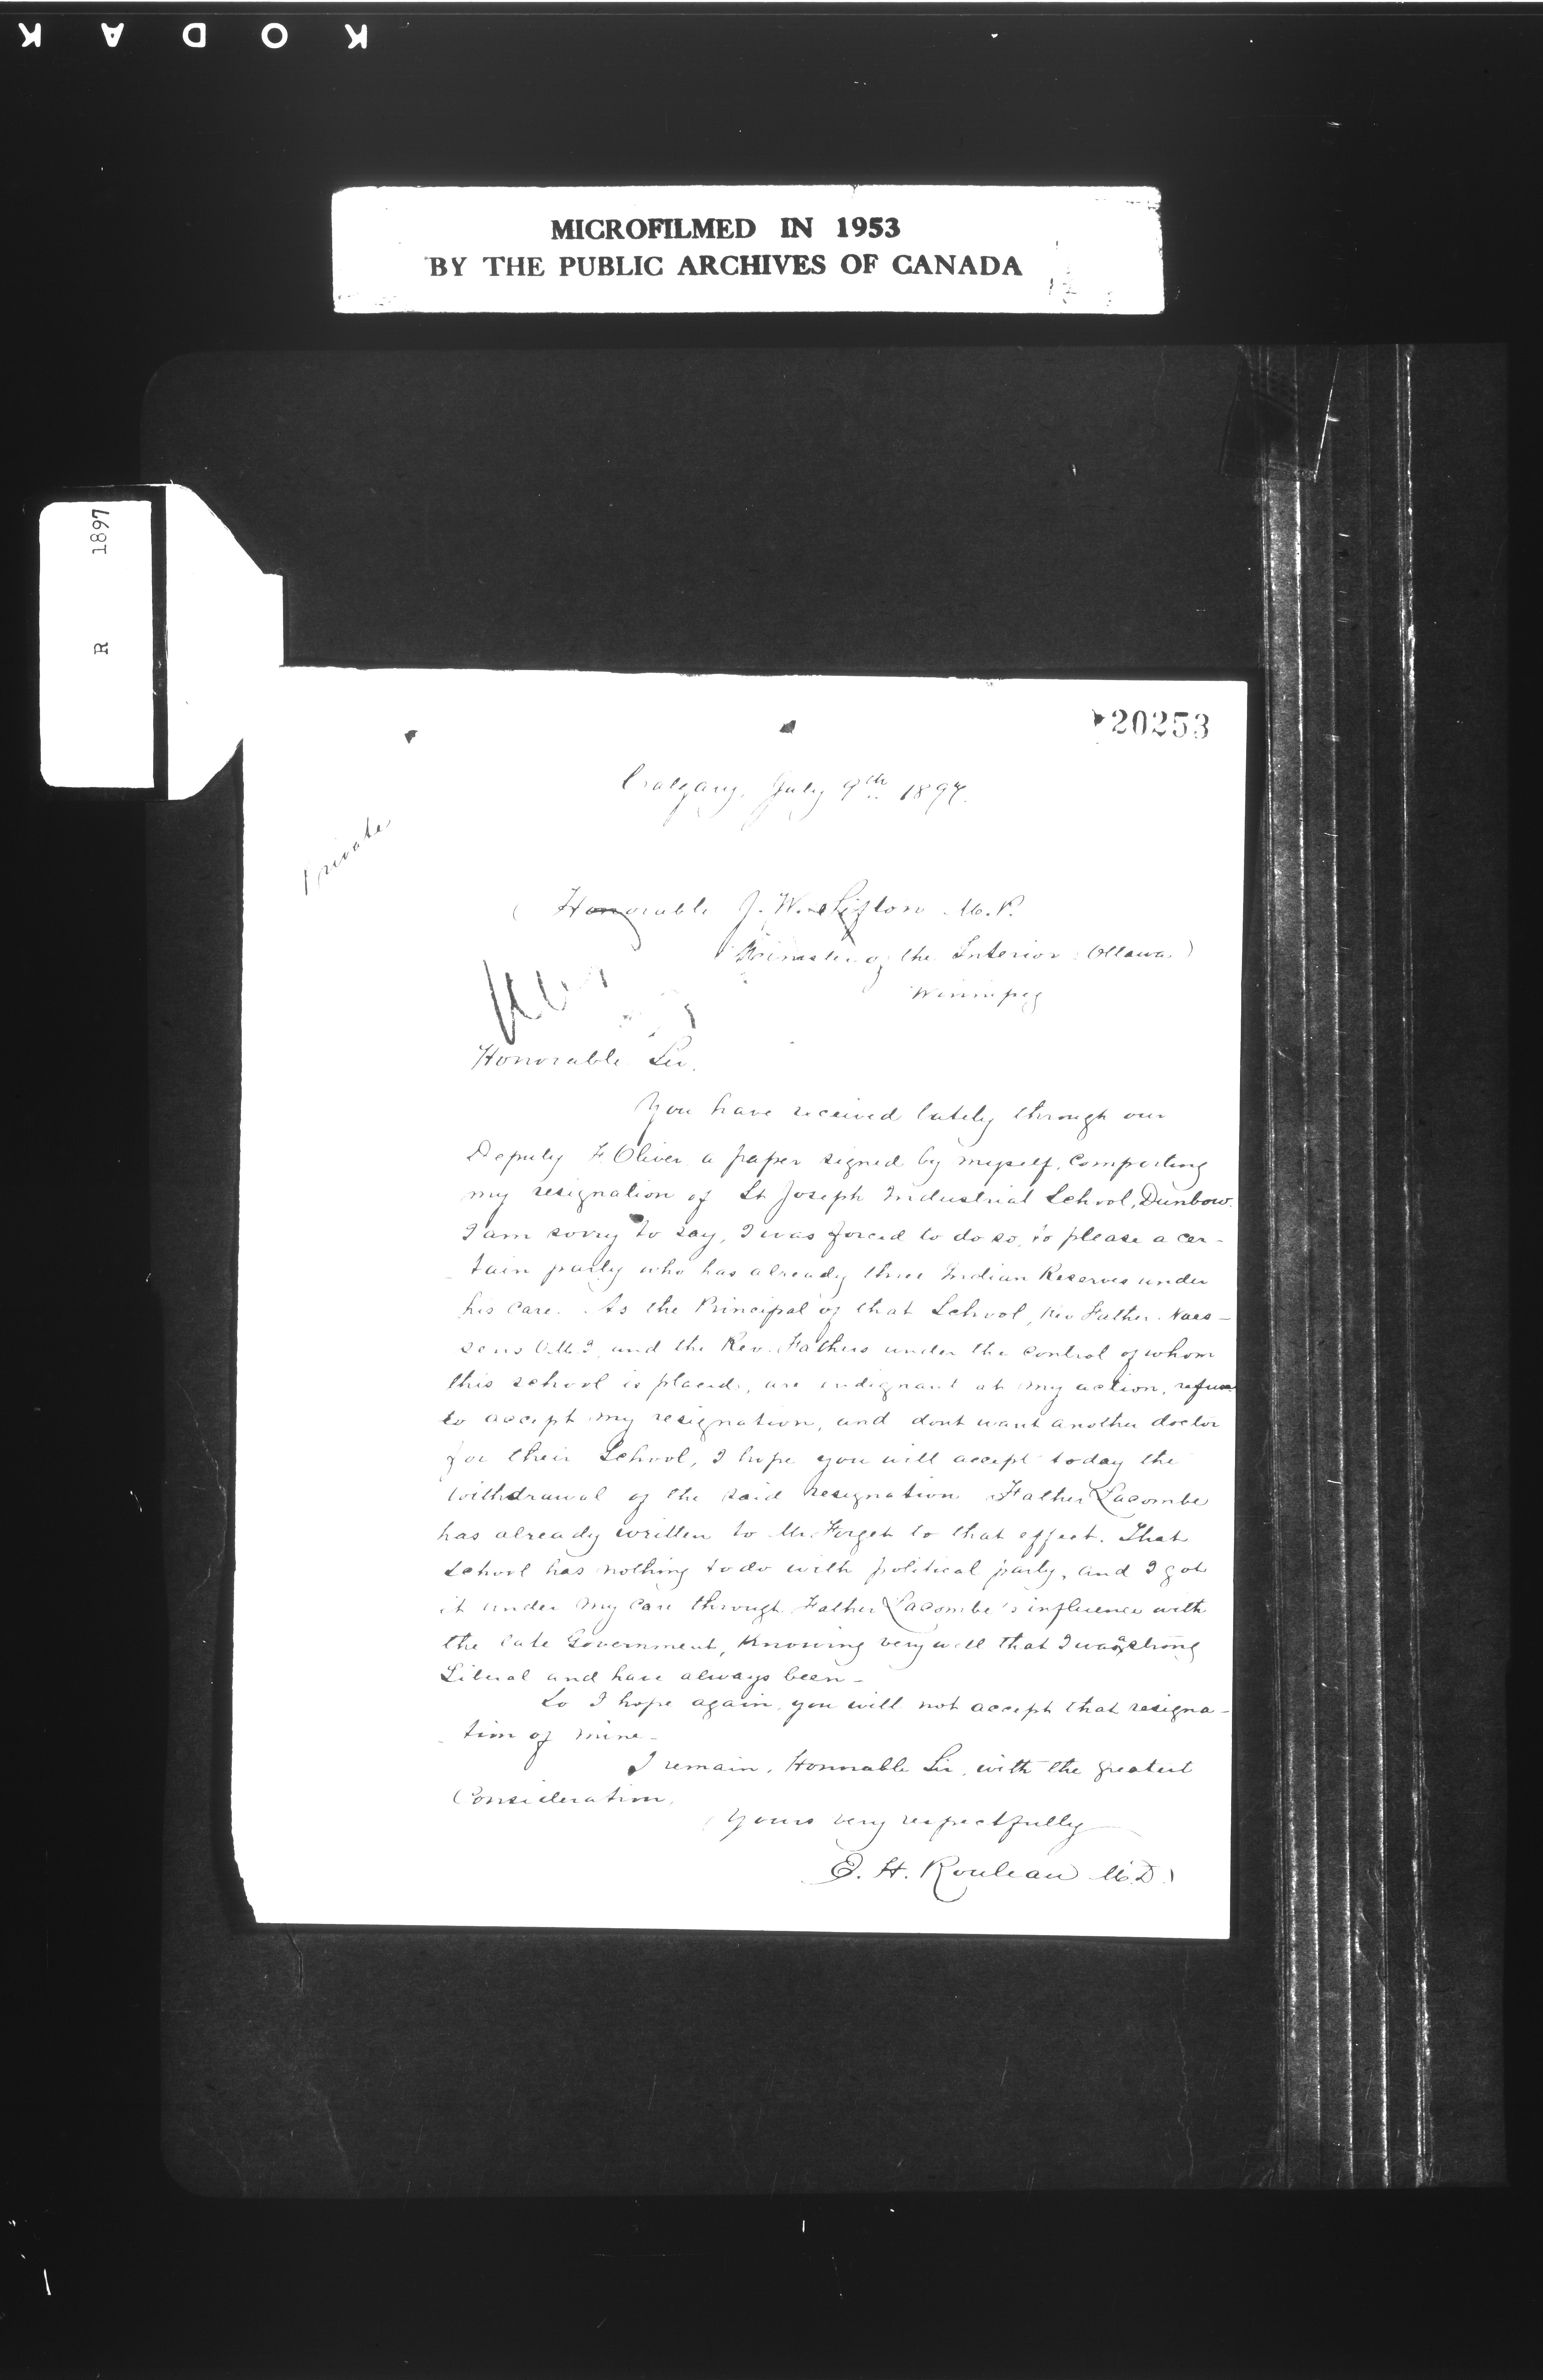 KODAK
MICROFILMED IN 1953
BY THE PUBLIC ARCHIVES OF CANADA
R 1897
20253
Calgary, July 9th 1897.
Private
Honorable J. W. Sifton M.P.
Minister of the Interior Ottawa
Winnipeg
Honorable Sir,
You have received lately through our
Deputy F Oliver a paper signed by myself, comporting
my resignation of St Joseph Industrial School, Dunbow.
I am sorry to say, I was forced to do so, to please a cer-
tain party who has already three Indian Reserves under
his care. As the Principal of that School, Rev Father Naes-
sens O.M.I. and the Rev. Fathers under the control of whom
this school is placed, are indignant at my action, refuse
to accept my resignation, and dont want another doctor
for their School, I hope you will accept today the
withdrawal of the said resignation Father Lacombe
has already written to Mr. Forget to that effect. That
School has nothing to do with political party, and I got
it under my care through Father Lacombe's influence with
the late Government, knowing very well that I was a strong
Liberal and have always been-
So I hope again, you will not accept that resigna-
tion of mine-
I remain, Honorable Sir, with the greatest
Consideration,
Yours very respectfully
E. H. Rouleau M.D.